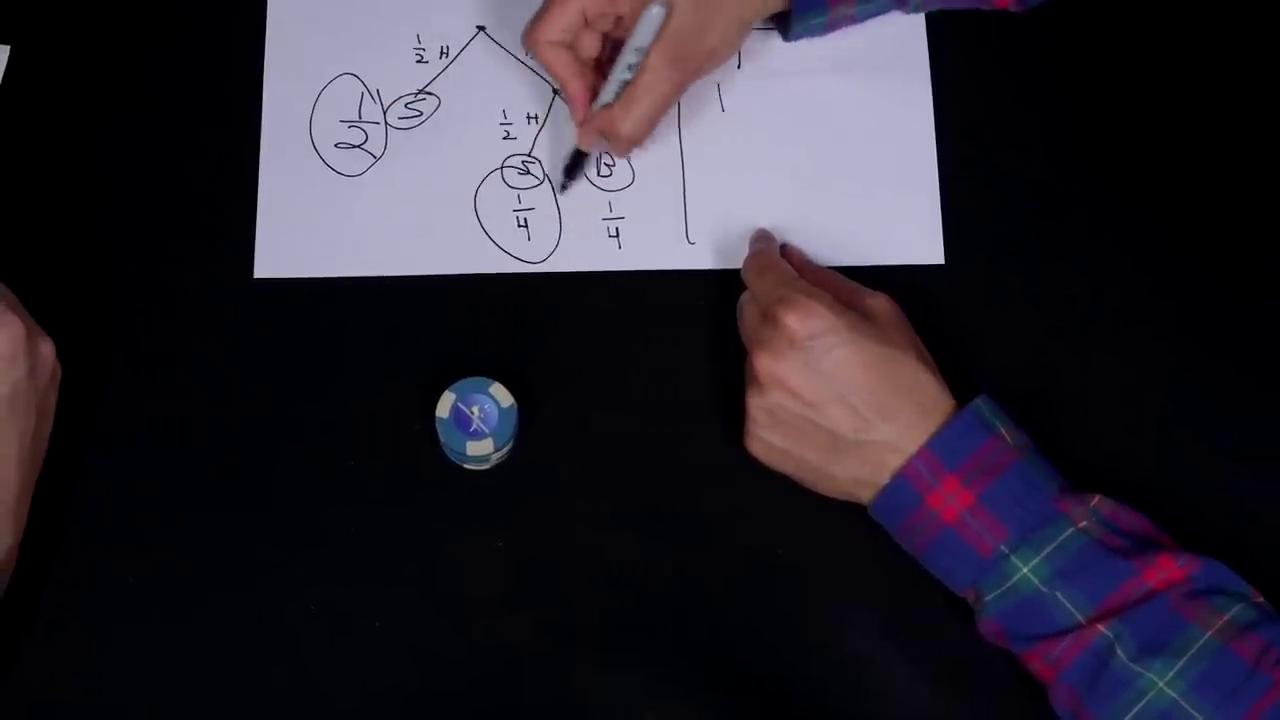 1/2 H
1/2 S
1/2 H
S B
1/4 1/4